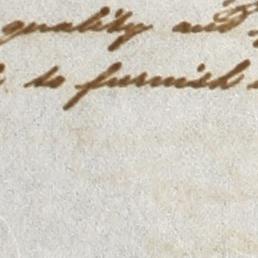 quality and
to furnish